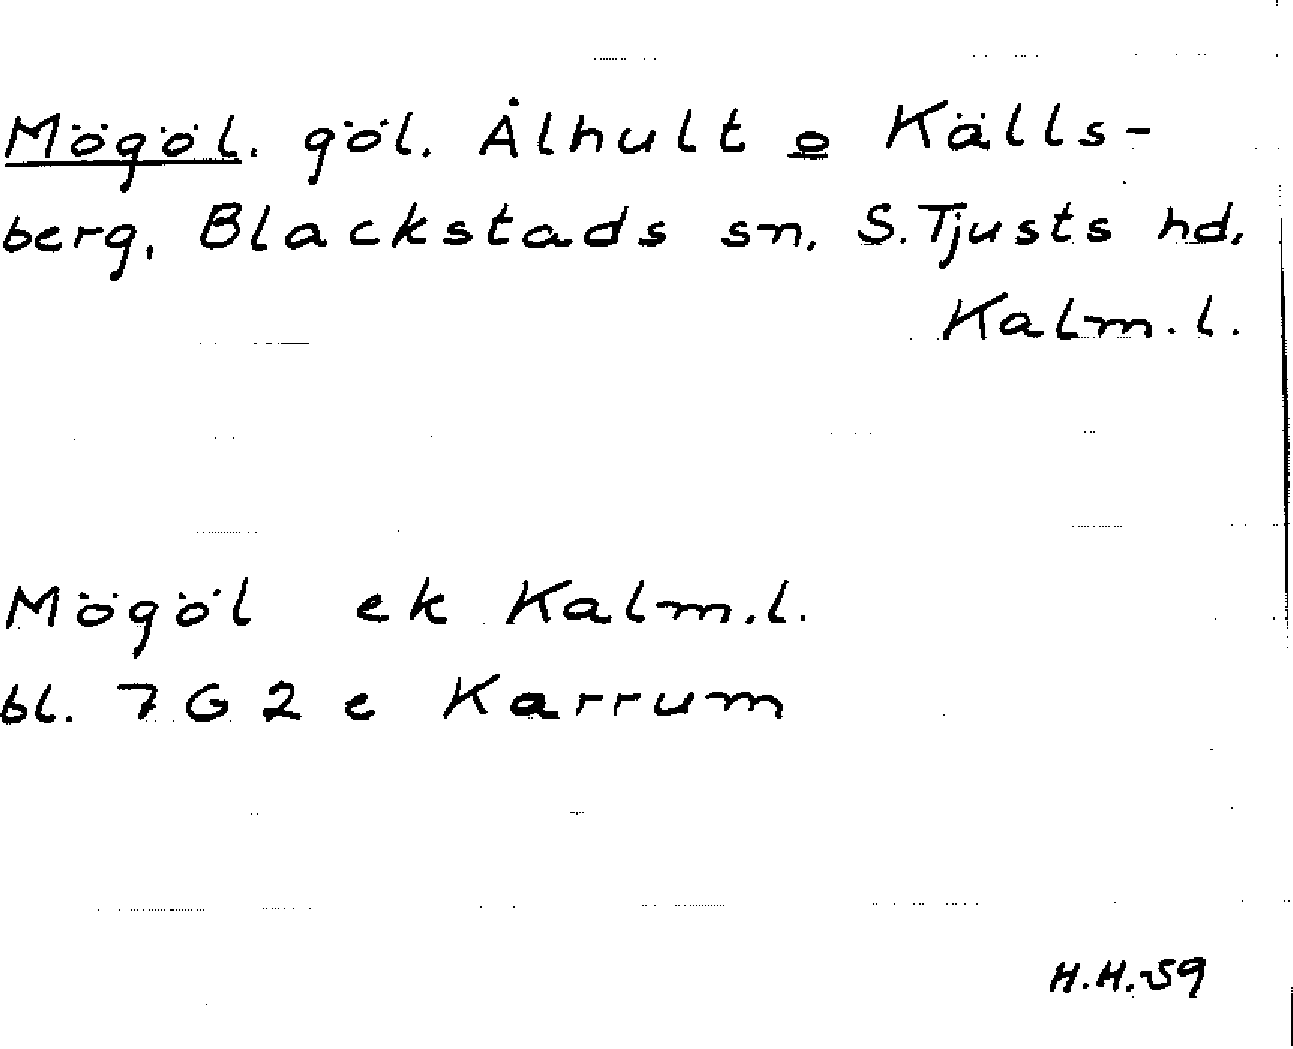 Mögöl. göl. Ålhult o Källs-
berg, Blackstads sn. S. Tjusts hd.
Kalm. l.
Mögöl ek Kalm. l.
bl. 7 G 2 e Karrum
H.H.-59